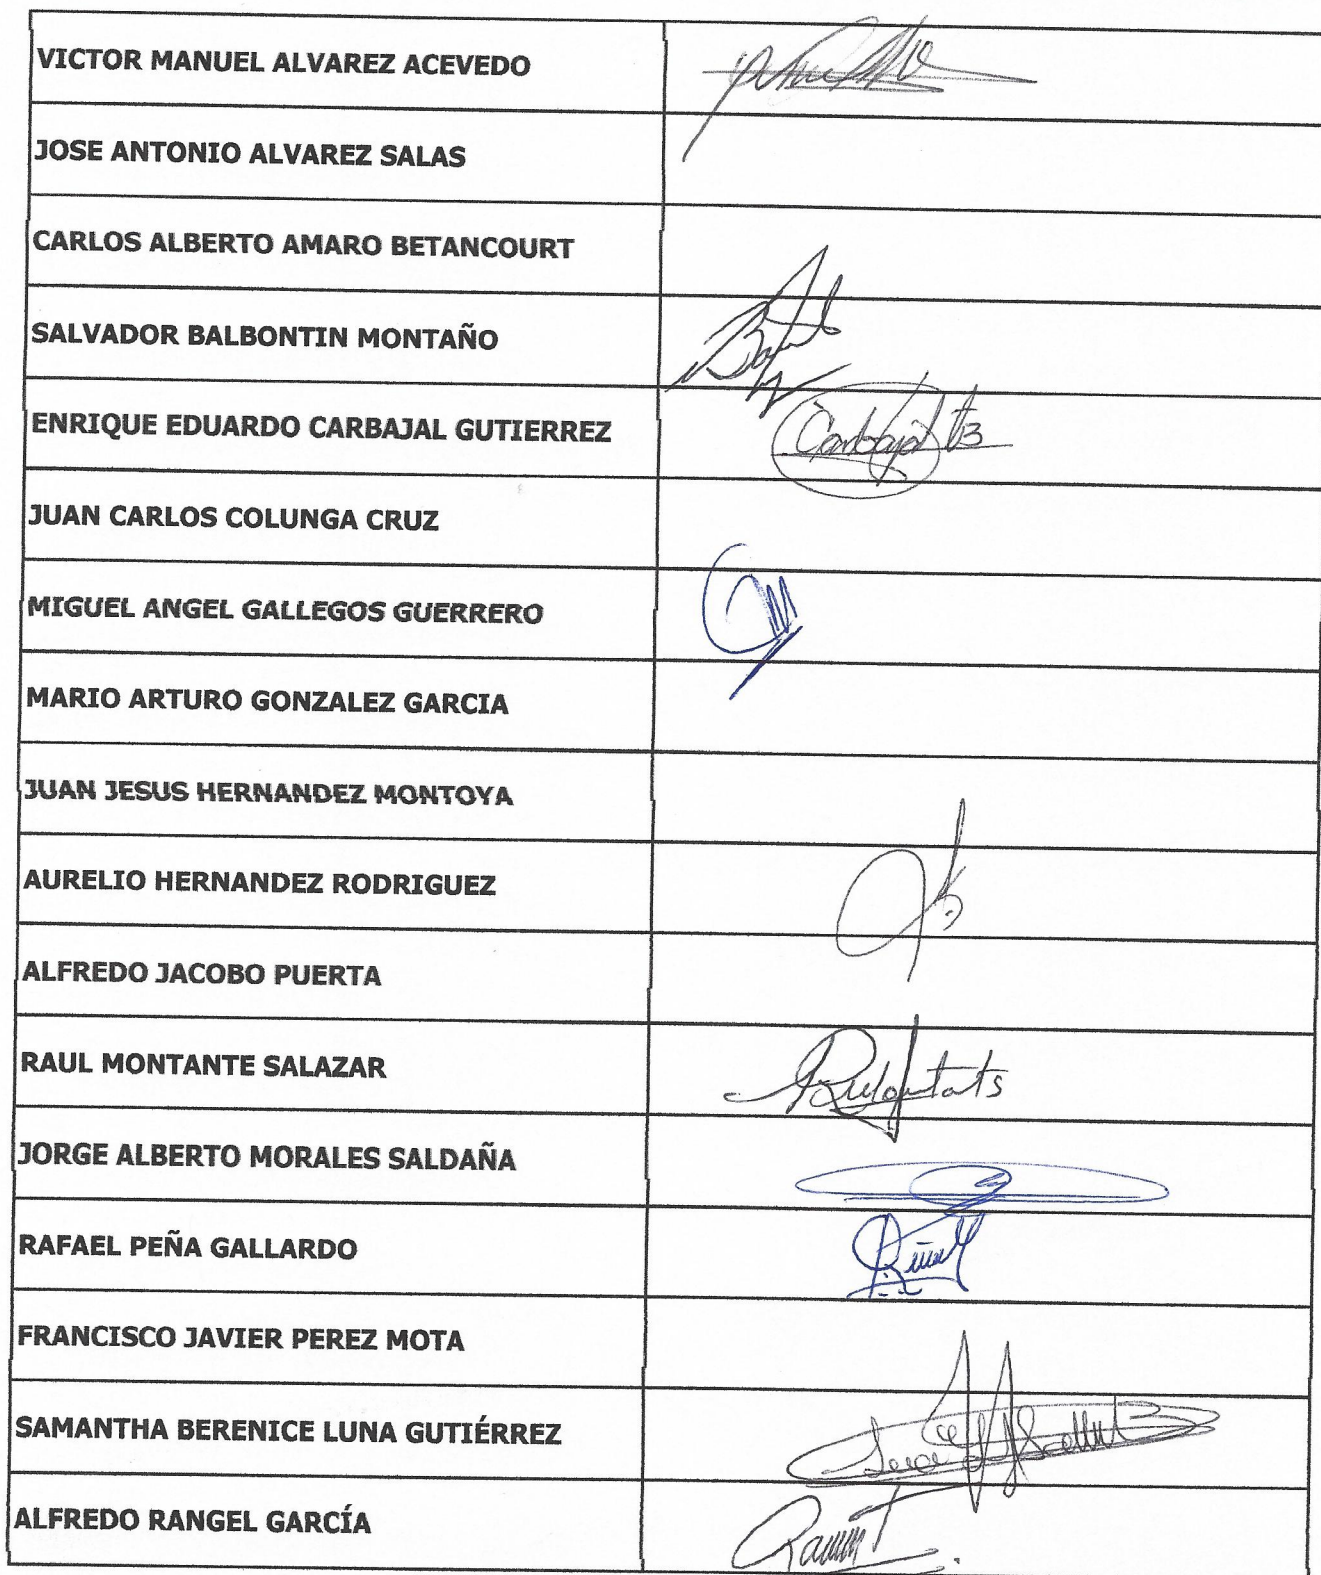 VICTOR MANUEL ALVAREZ ACEVEDO
JOSE ANTONIO ALVAREZ SALAS
CARLOS ALBERTO AMARO BETANCOURT
SALVADOR BALBONTIN MONTAÑO
ENRIQUE EDUARDO CARBAJAL GUTIERREZ
Carbajal
JUAN CARLOS COLUNGA CRUZ
MIGUEL ANGEL GALLEGOS GUERRERO
MARIO ARTURO GONZALEZ GARCIA
JUAN JESUS HERNANDEZ MONTOYA
AURELIO HERNANDEZ RODRIGUEZ
ALFREDO JACOBO PUERTA
RAUL MONTANTE SALAZAR
JORGE ALBERTO MORALES SALDAÑA
RAFAEL PEÑA GALLARDO
FRANCISCO JAVIER PEREZ MOTA
SAMANTHA BERENICE LUNA GUTIÉRREZ
ALFREDO RANGEL GARCÍA